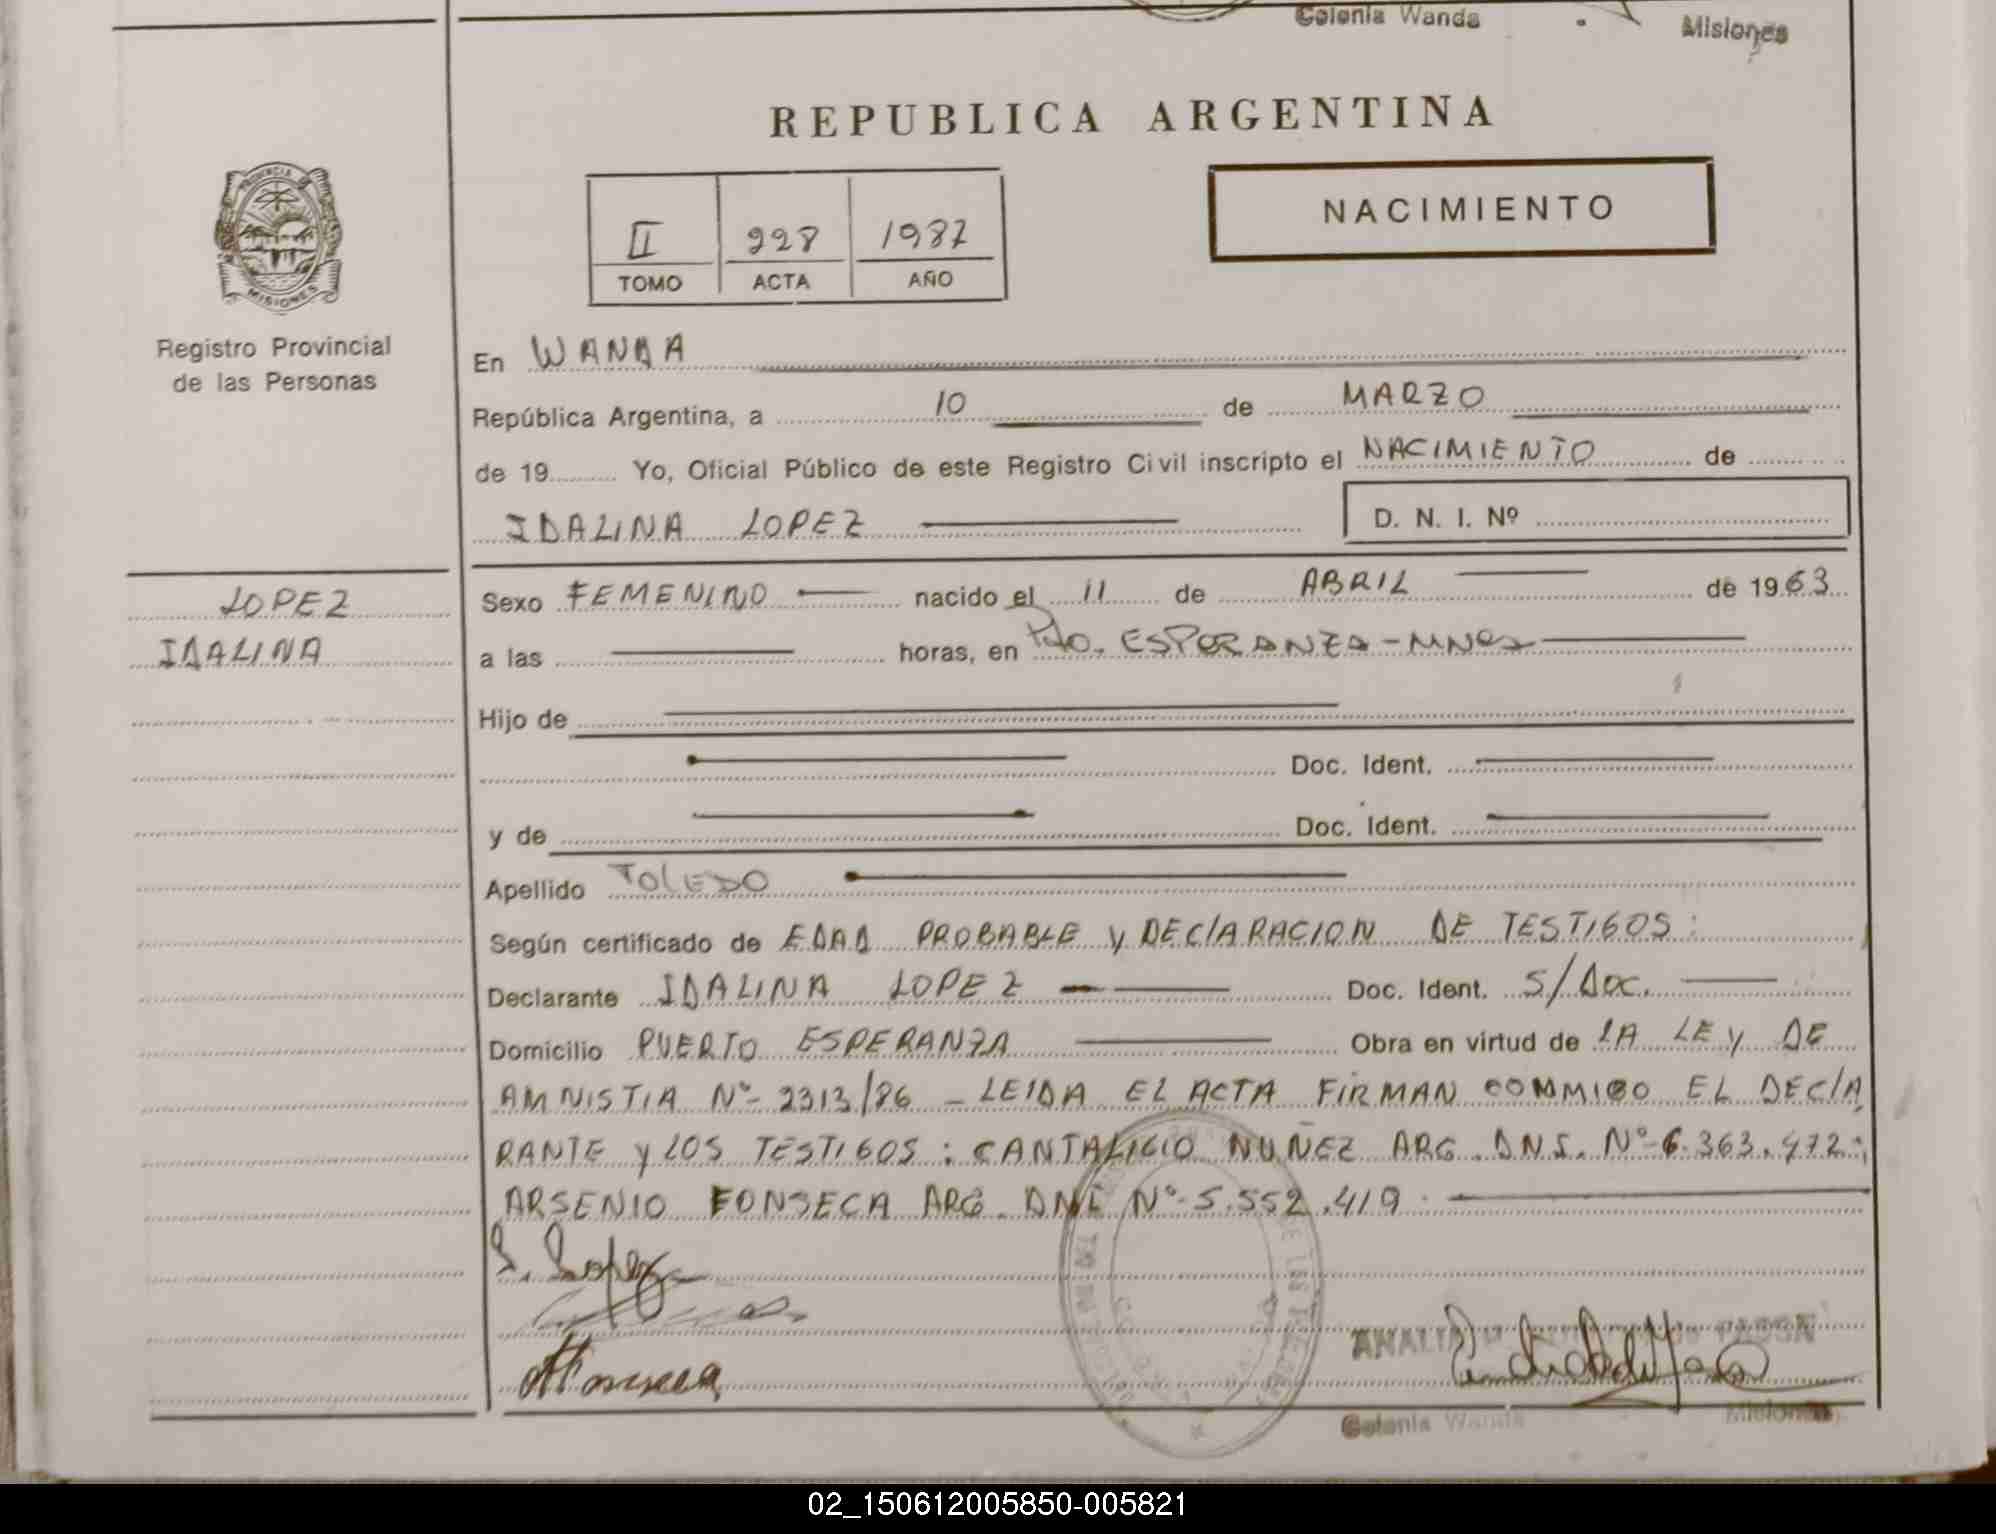 Colonia Wanda Misiones
REPUBLICA ARGENTINA
PROVINCIA DE
MISIONES
Registro Provincial
de las Personas
NACIMIENTO
II 228 1987
TOMO ACTA AÑO
En WANDA
República Argentina, a 10 de MARZO
de 19 Yo, Oficial Público de este Registro Civil inscripto el NACIMIENTO de
IDALINA LOPEZ D. N. I. Nº
LOPEZ
IDALINA
Sexo FEMENINO nacido el 11 de ABRIL de 1963
a las horas, en Pto. ESPERANZA - MNES
Hijo de
Doc. Ident.
y de Doc. Ident.
Apellido TOLEDO
Según certificado de EDAD PROBABLE y DECLARACION DE TESTIGOS:
Declarante IDALINA LOPEZ Doc. Ident. S/Doc.
Domicilio PUERTO ESPERANZA Obra en virtud de LA LEY DE
AMNISTIA Nº- 2313/86 - LEIDA EL ACTA FIRMAN CONMIGO EL DECLA
RANTE y LOS TESTIGOS: CANTALICIO NUÑEZ ARG. DNI. Nº- 6.363.472;
ARSENIO FONSECA ARG. DNI Nº- 5.552.419.
I. Lopez
AFonseca
Colonia Wanda Misiones
02_150612005850-005821